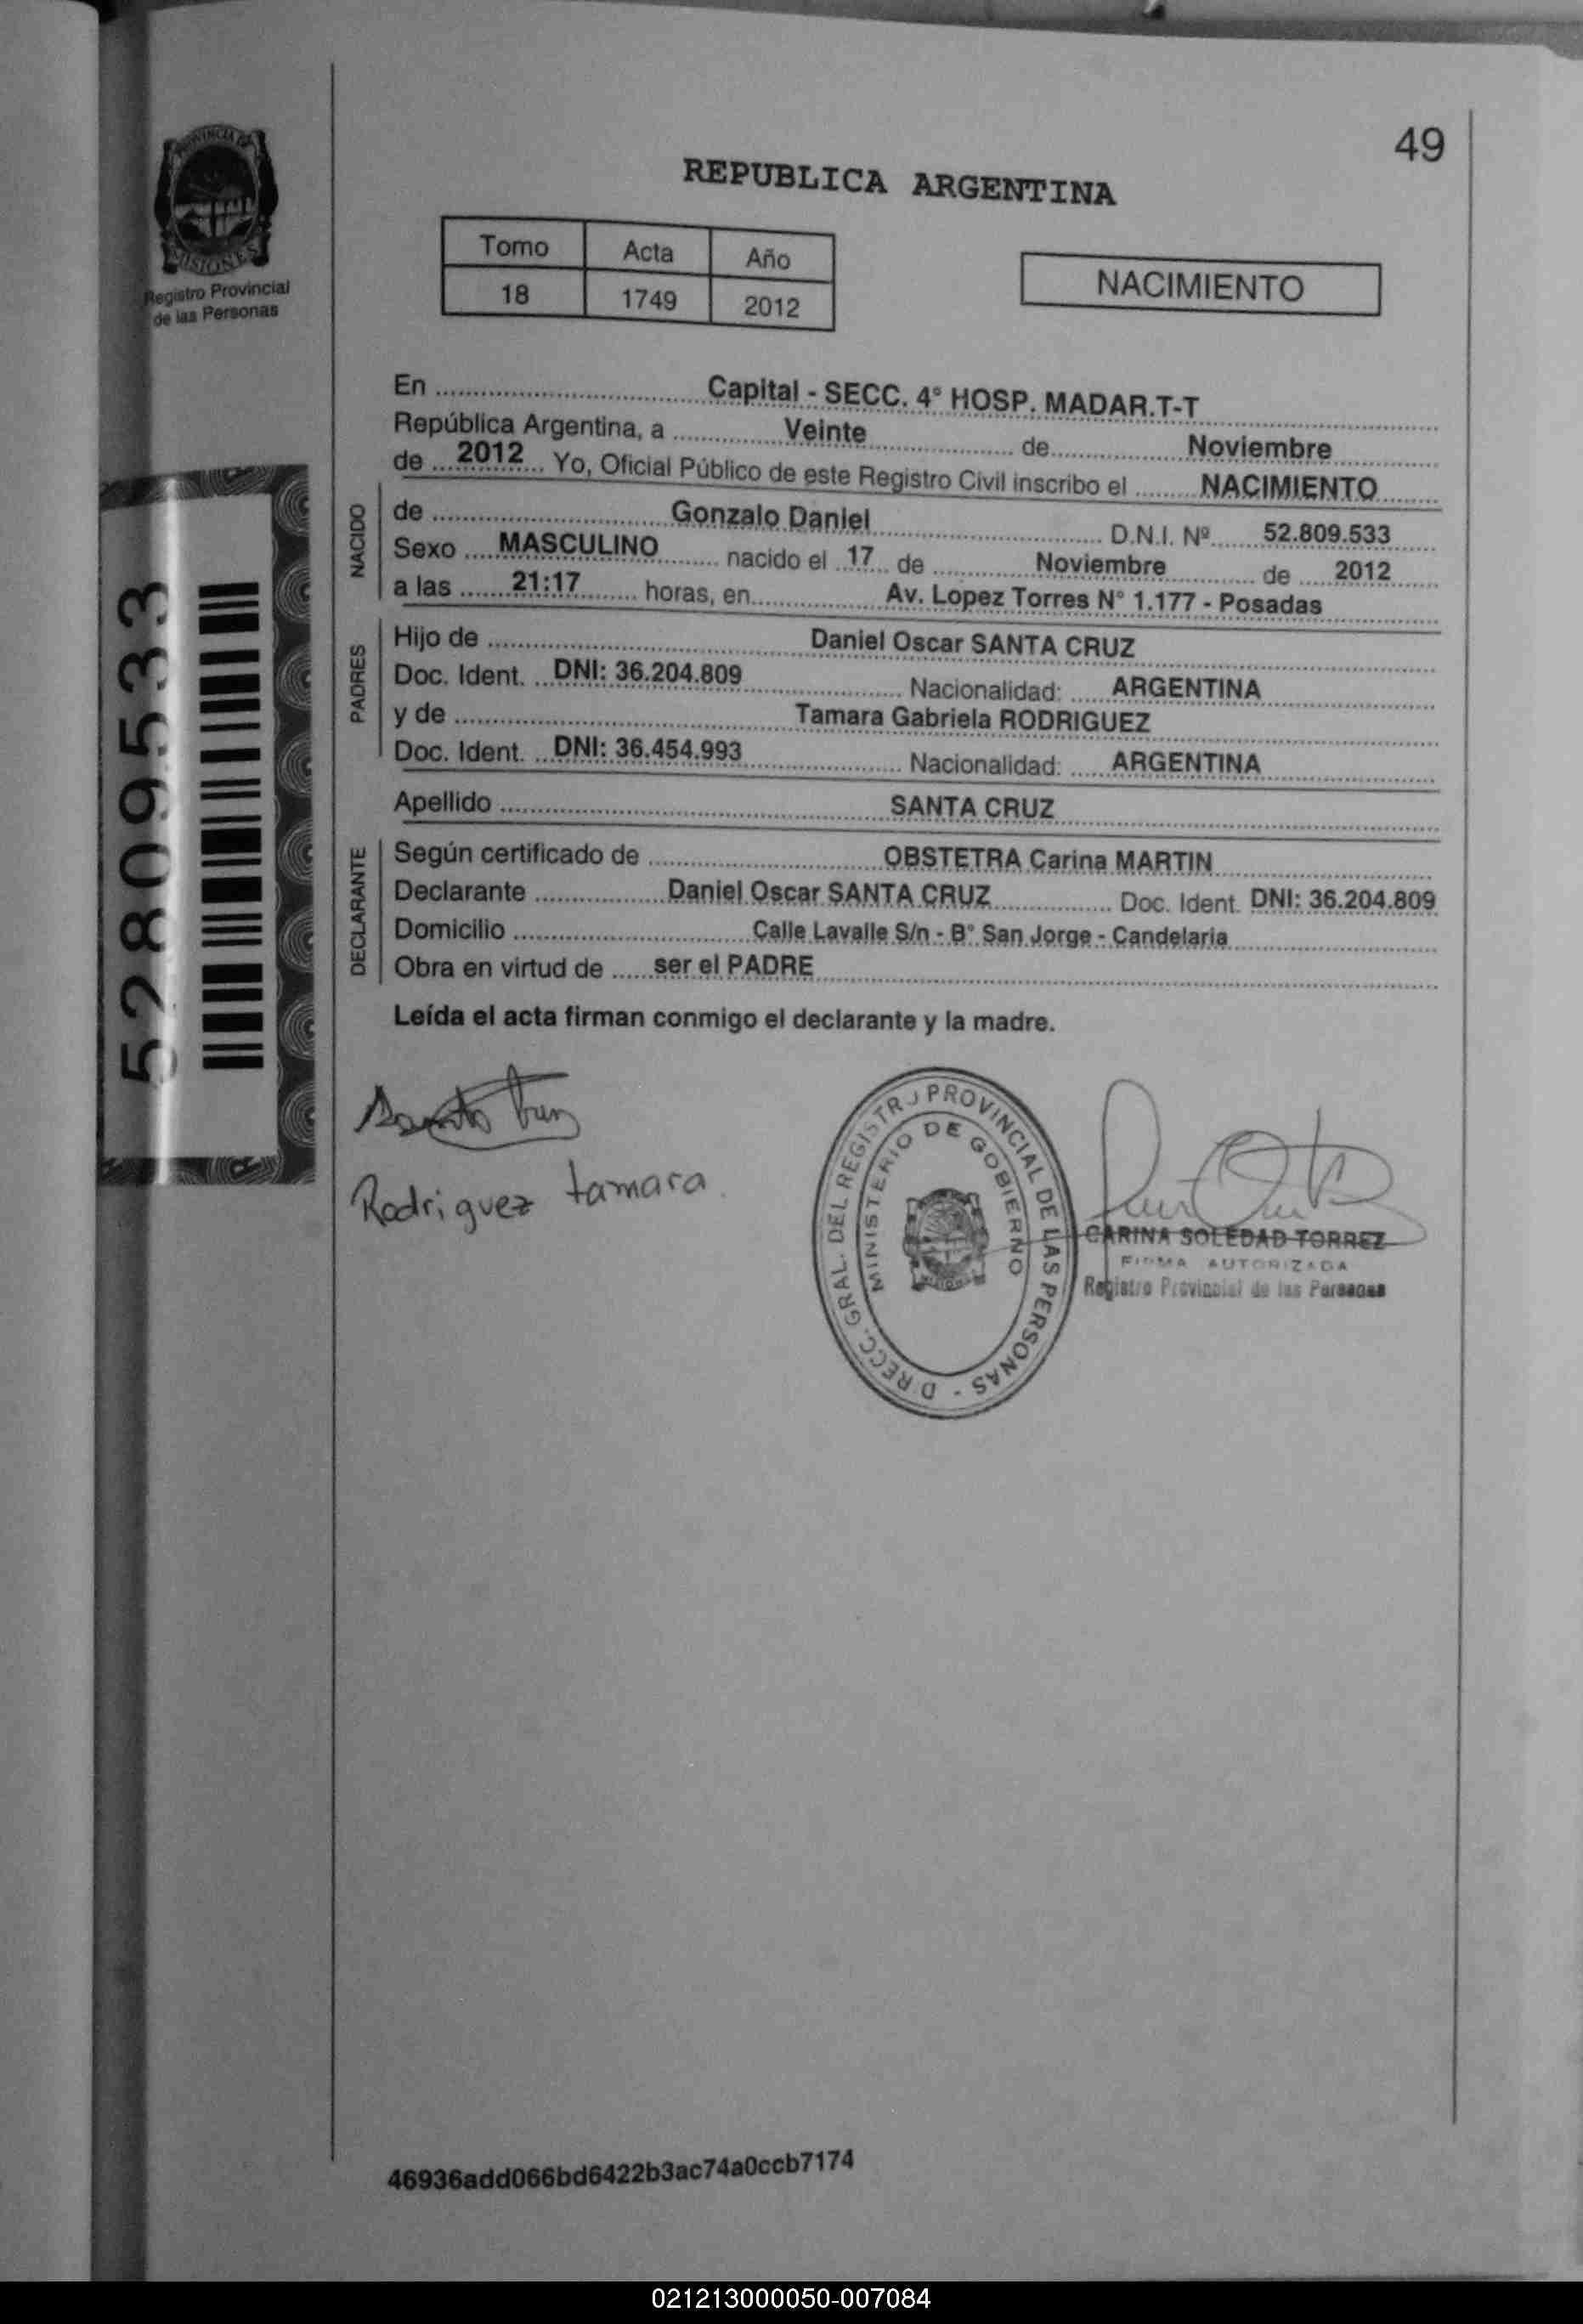 49
PROVINCIA DE
MISIONES
Registro Provincial
de las Personas
REPUBLICA ARGENTINA
Tomo Acta Año
18 1749 2012
NACIMIENTO
52809533
En ........ Capital - SECC. 4° HOSP. MADAR.T-T
República Argentina, a ........ Veinte ........ de ........ Noviembre
de ... 2012 ... Yo, Oficial Público de este Registro Civil inscribo el ........ NACIMIENTO
NACIDO
de ........ Gonzalo Daniel ........ D.N.I. Nº ........ 52.809.533
Sexo .... MASCULINO ........ nacido el .. 17 .. de ........ Noviembre ........ de .... 2012
a las ...... 21:17 ........ horas, en ........ Av. Lopez Torres N° 1.177 - Posadas
PADRES
Hijo de ........ Daniel Oscar SANTA CRUZ
Doc. Ident. ... DNI: 36.204.809 ........ Nacionalidad: ..... ARGENTINA
y de ........ Tamara Gabriela RODRIGUEZ
Doc. Ident. ... DNI: 36.454.993 ........ Nacionalidad: ..... ARGENTINA
Apellido ........ SANTA CRUZ
DECLARANTE
Según certificado de ........ OBSTETRA Carina MARTIN
Declarante ........ Daniel Oscar SANTA CRUZ ........ Doc. Ident. DNI: 36.204.809
Domicilio ........ Calle Lavalle S/n - B° San Jorge - Candelaria
Obra en virtud de ...... ser el PADRE
Leída el acta firman conmigo el declarante y la madre.
Rodriguez tamara
DIRECC. GRAL. DEL REGISTRO PROVINCIAL DE LAS PERSONAS -
MINISTERIO DE GOBIERNO
CARINA SOLEDAD TORREZ
FIRMA AUTORIZADA
Registro Provincial de las Personas
46936add066bd6422b3ac74a0ccb7174
021213000050-007084